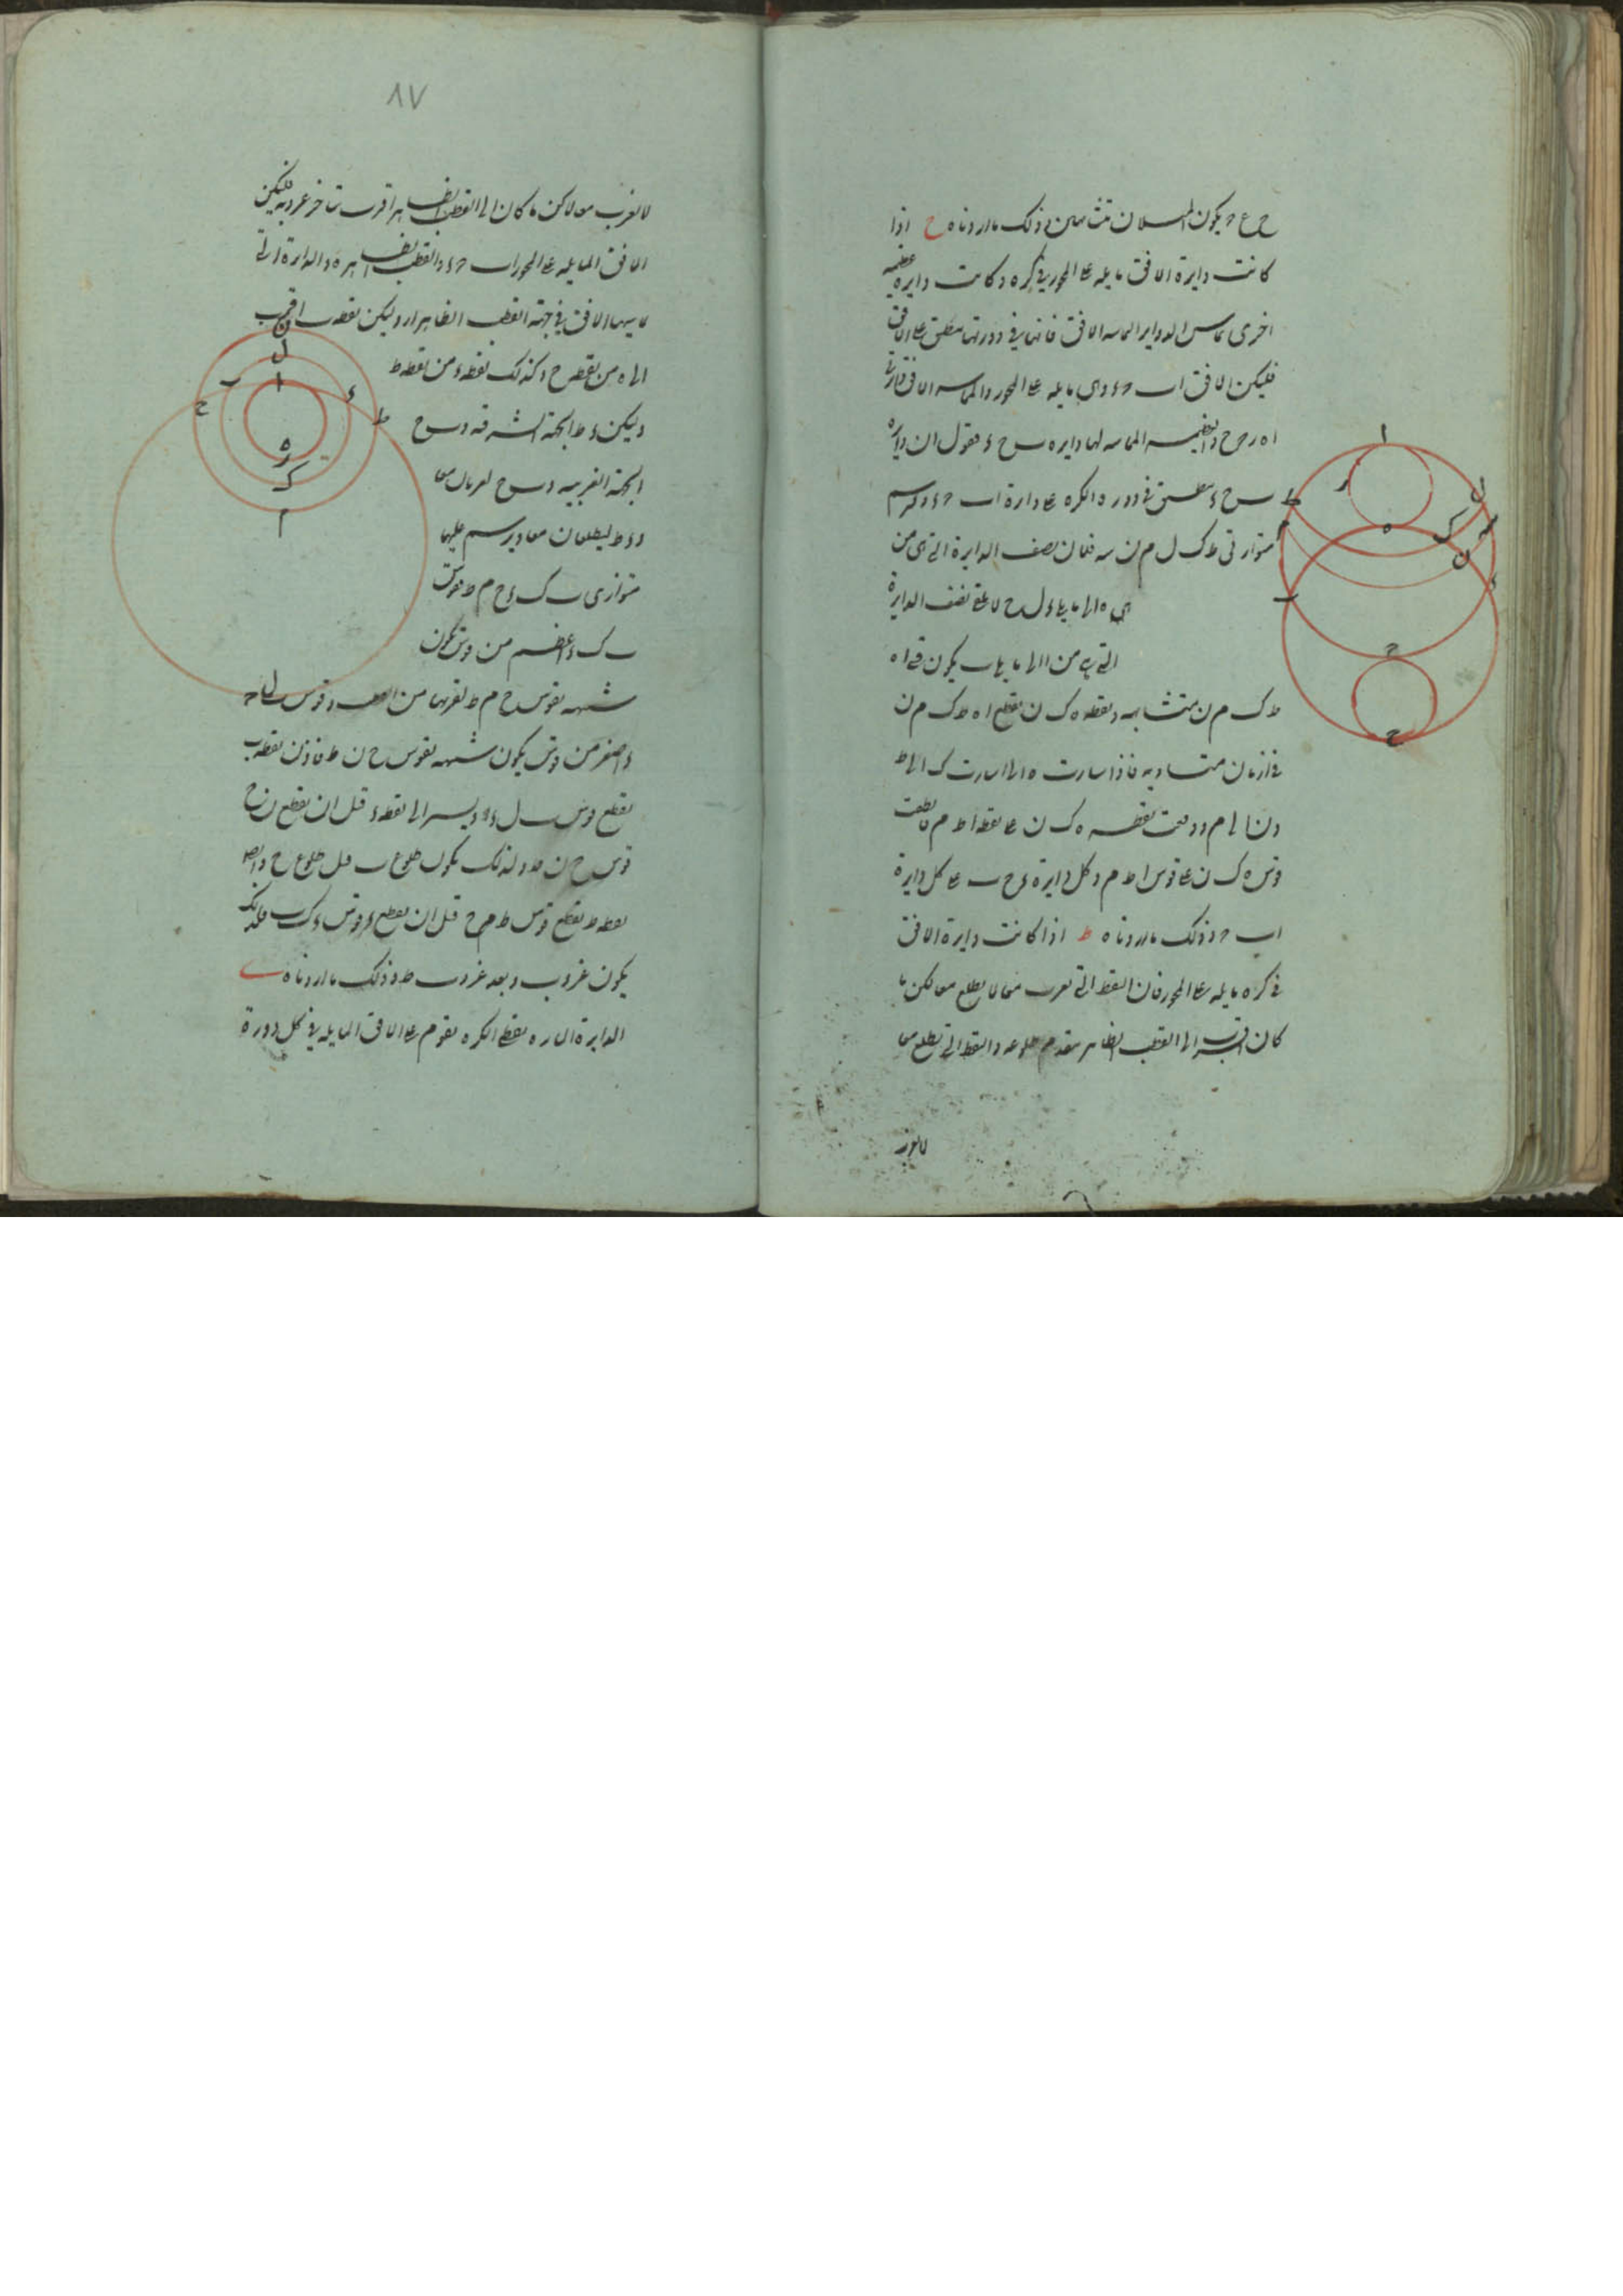 ح ع ح يكون الميلان متشابهين وذلك ما اردناه ح اذا
كانت دايرة الافق مايله على المحور في كره وكانت دايره عظيمه
اخرى تماس الدواير المماسه الافق فانها في دورتها منطبق على الافق
فليكن الافق اب ح د وهى مايله على المحور والمماسه الافق دايرتى
اه ر ح ح والعظيمه المماسه لها دايره ب ح د فنقول ان دايره
ب ح د ينطبق في دوره الكره على دايرة اب ح د ونرسم
متوازيتى ط ك ل م ن سه فلان نصف الدايرة التى من
ه الى ما يلى د ل ح لا يلقى نصف الدايرة
التى من ا الى ما يلى ب يكون قسى اه
ط ك م ن متشابهه ونقطه ه ك ن يقطع اه ط ك م ن
في ازمان متساويه فاذا سارت ه الى ا سارت ك الى ط
و ن الى م ووقعت نقطه ه ك ن على نقط ا ط م وانطبقت
قوس ه ك ن على قوس ا ط م وكل دايرة د ح ب على كل دايرة
اب ح د وذلك ما اردناه ط اذا كانت دايرة الافق
في كره مايله على المحور فان النقط التى تغرب معا لا يطلع معا لكن ما
كان اقرب الى القطب الظاهر يتقدم طلوعه والنقط التى تطلع معا
لا تغرب
٨٧
لا تغرب معا لكن ما كان الى القطب الظاهر اقرب تاخر غروبه فليكن
الافق المايله على المحور اب ح د والقطب الظاهر ه والدايرة التى
تماسها الافق في جهة القطب الظاهر ار وليكن نقطه ب اقرب
الى ه من نقطه ح وكذلك نقطه د من نقطه ط
وليكن د ط الجهة الشرقيه و ب ح
الجهة الغربيه و ب ح يغربان معا
و د ط يطلعان معا ويرسم عليها
متوازيى ب ك د ح م ط فقوس
ب ك د اعظم من قوس يكون
شبيهه بقوس ح م ط لقربها من القطب وقوس ب ل د
اصغر من قوس يكون شبيهه بقوس ح ن ط فاذن نقطه ب
يقطع قوس ب ل د ويسير الى نقطه د قبل ان يقطع ح
قوس ح ن ط ولذلك يكون طلوع ب قبل طلوع ح وايضا
نقطه ط يقطع قوس ط م ح قبل ان يقطع د قوس د ك ب فلذلك
يكون غروب د بعد غروب ط وذلك ما اردناه ى
الدايرة المارة بقطبى الكره يقوم على الافق المايله في كل دورة